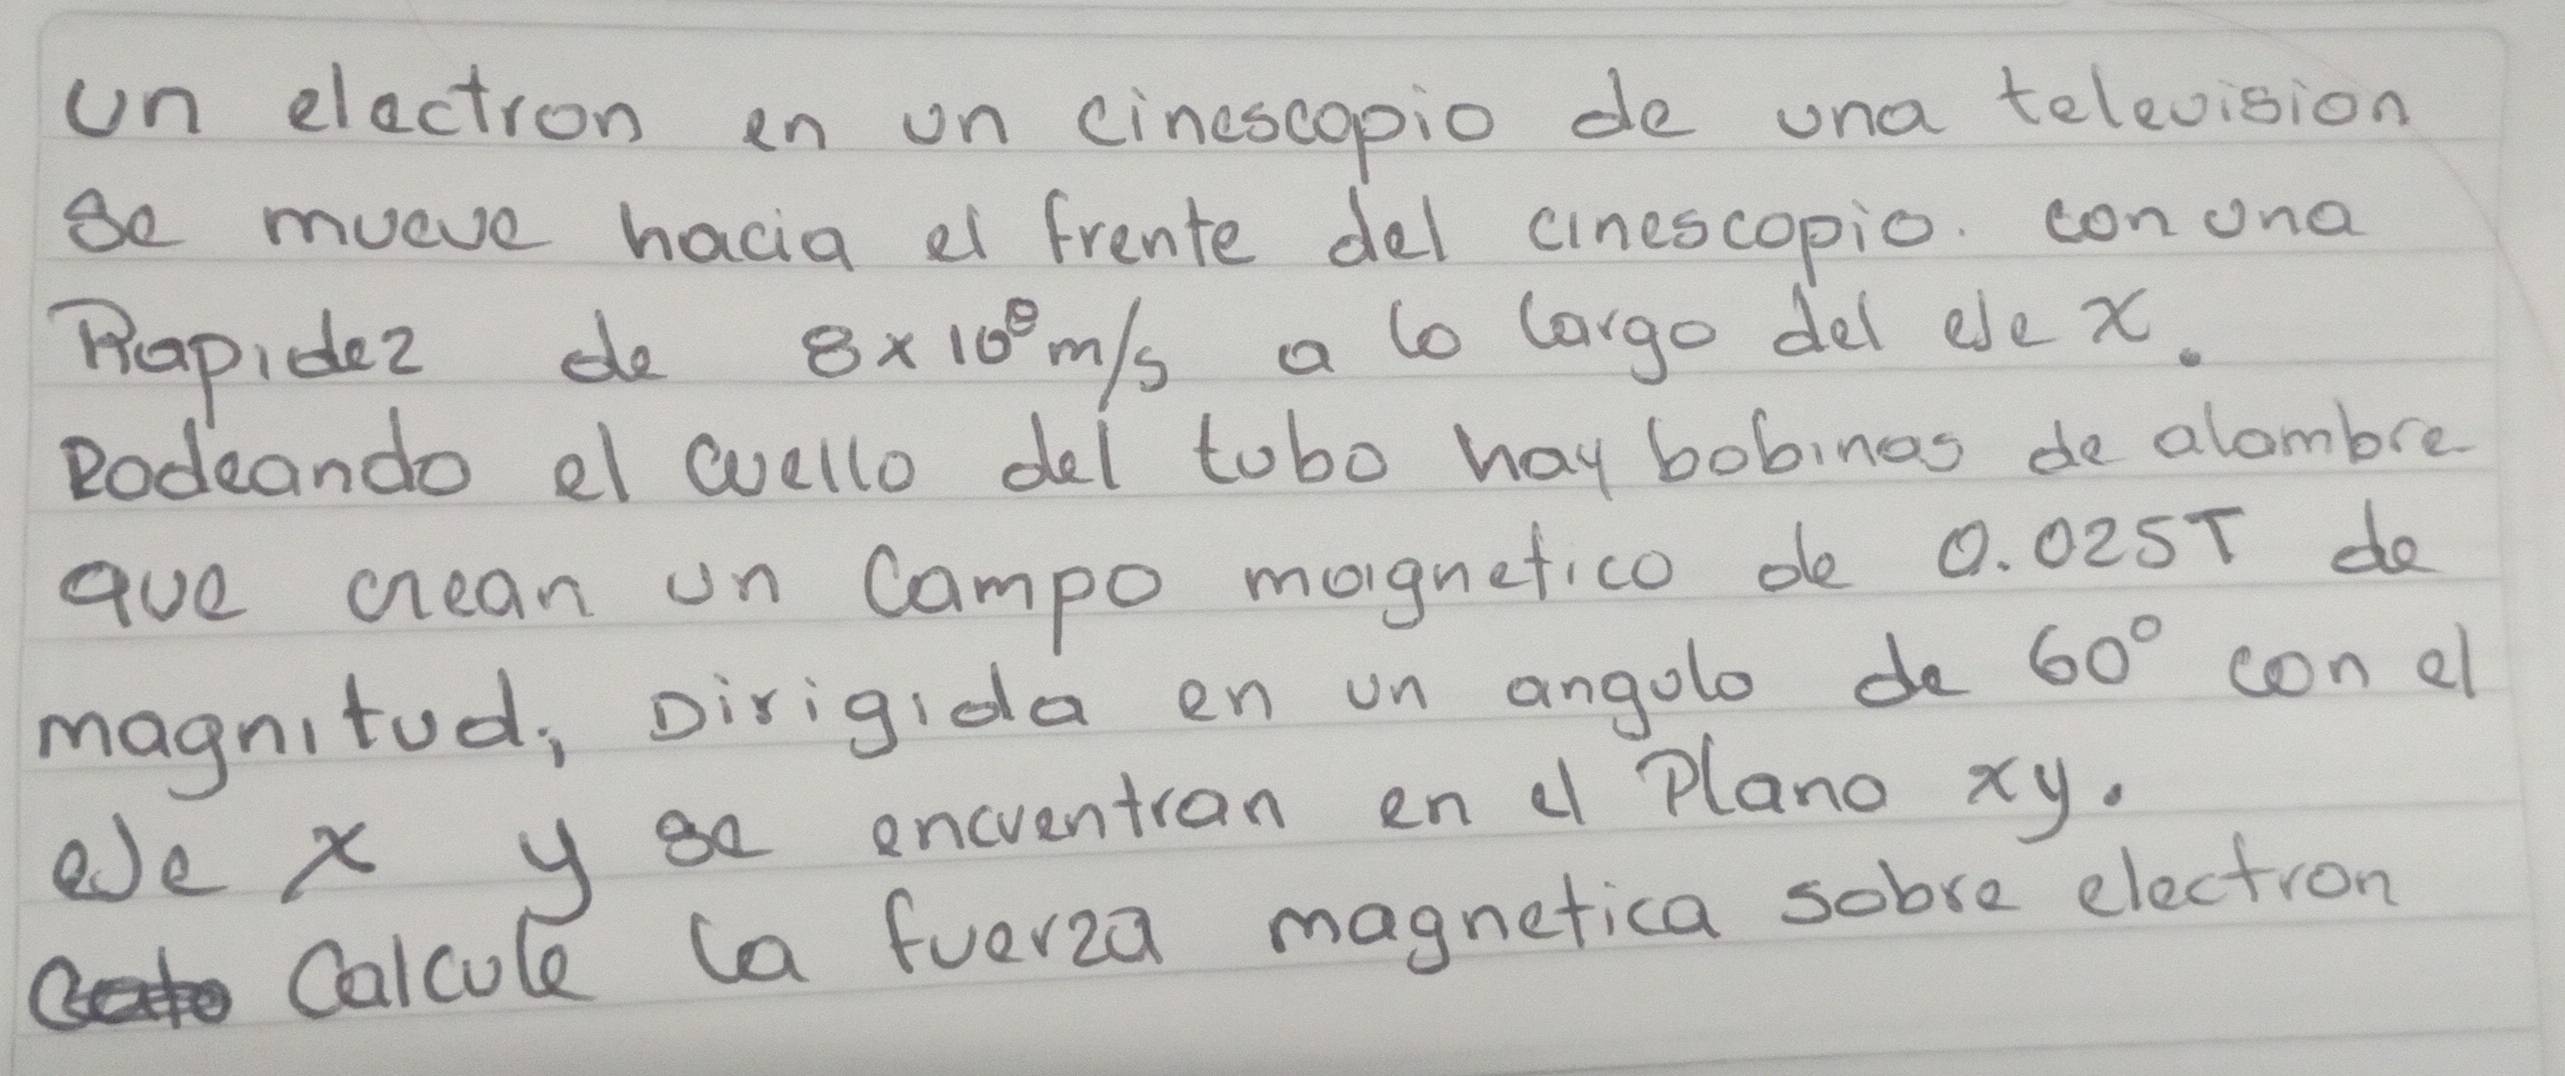 un electron en un cinescopio de una television
se mueve hacia el frente del cinescopio. con una
Rapidez de 8x10⁸ m/s a lo largo del eje x.
Rodeando el cuello del tubo hay bobinas de alambre
que crean un Campo magnetico de 0.025T de
magnitud; Dirigida en un angulo de 60° con el
eje x y se encuentran en el Plano xy.
Calcule la fuerza magnetica sobre electron